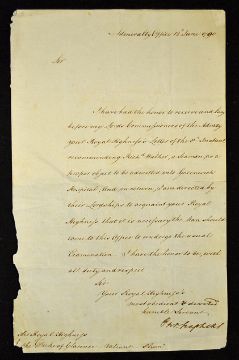 Admiralty Office 18 June 1790
Sir
I have had the honor to receive and lay
before my Lords Commissioners of the Admty
your Royal Highness's Letter of the
recommending Richd Walker, a Seaman for a
proper object to be admitted into Greenwich
Hospital, And in return, I am directed by
their Lordships to acquaint your Royal
Highness that it is necessary the Man should
come to this Office to undergo the usual
Examination. I have the honor to be, with
all duty and respect
Sir
Your Royal Highness's
most obedient & devoted
humble Servant
Stephens
His Royal Highness
the Duke of Clarence Valiant